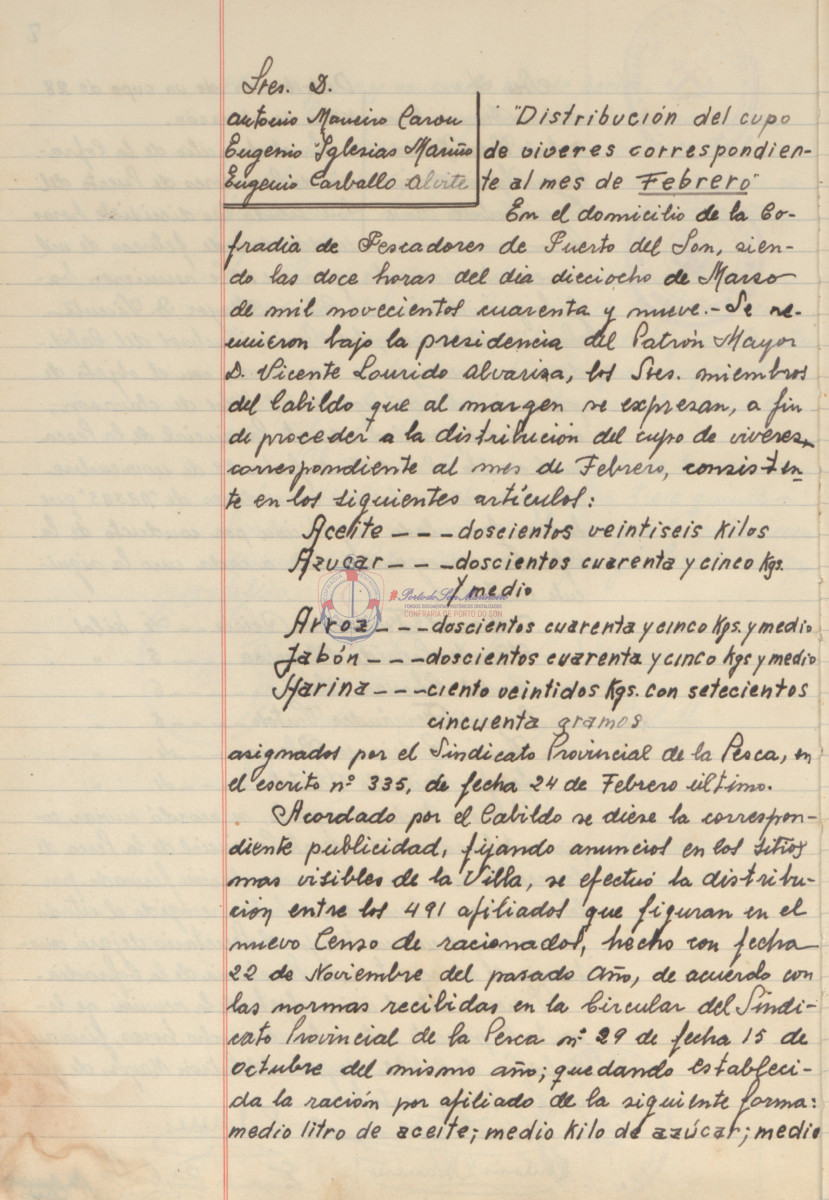 Sres. D.
Antonio Maneiro Carou
Eugenio Iglesias Mariño
Eugenio Carballo Alvite
"Distribución del cupo
de viveres correspondien-
te al mes de Febrero"
En el domicilio de la Co-
fradia de Pescadores de Puerto del Son, sien-
do las doce horas del dia dieciocho de Marzo
de mil novecientos cuarenta y nueve.- Se re-
unieron bajo la presidencia del Patrón Mayor
D. Vicente Lourido Alvariza, los Sres. miembros
del Cabildo que al margen se expresan, a fin
de proceder a la distribución del cupo de viveres,
correspondiente al mes de Febrero, consisten-
te en los siguientes artículos:
Aceite - - - doscientos veintiseis kilos
Azucar - - - doscientos cuarenta y cinco Kgs.
y medio
#PortodoSonMariñeiro
FONDOS DOCUMENTAIS HISTÓRICOS DIXITALIZADOS
CONFRARÍA DE PORTO DO SON
Arroz - - - doscientos cuarenta y cinco Kgs. y medio
Jabón - - - doscientos cuarenta y cinco Kgs y medio
Harina - - - ciento veintidos Kgs. con setecientos
cincuenta gramos
asignados por el Sindicato Provincial de la Pesca, en
el escrito nº 335, de fecha 24 de Febrero último.
Acordado por el Cabildo se diese la correspon-
diente publicidad, fijando anuncios en los sitios
mas visibles de la Villa, se efectuó la distribu-
ción entre los 491 afiliados que figuran en el
nuevo Censo de racionados, hecho con fecha
22 de Noviembre del pasado Año, de acuerdo con
las normas recibidas en la Circular del Sindi-
cato Provincial de la Pesca nº 29 de fecha 15 de
Octubre del mismo año; quedando estableci-
da la ración por afiliado de la siguiente forma:
medio litro de aceite; medio kilo de azúcar; medio